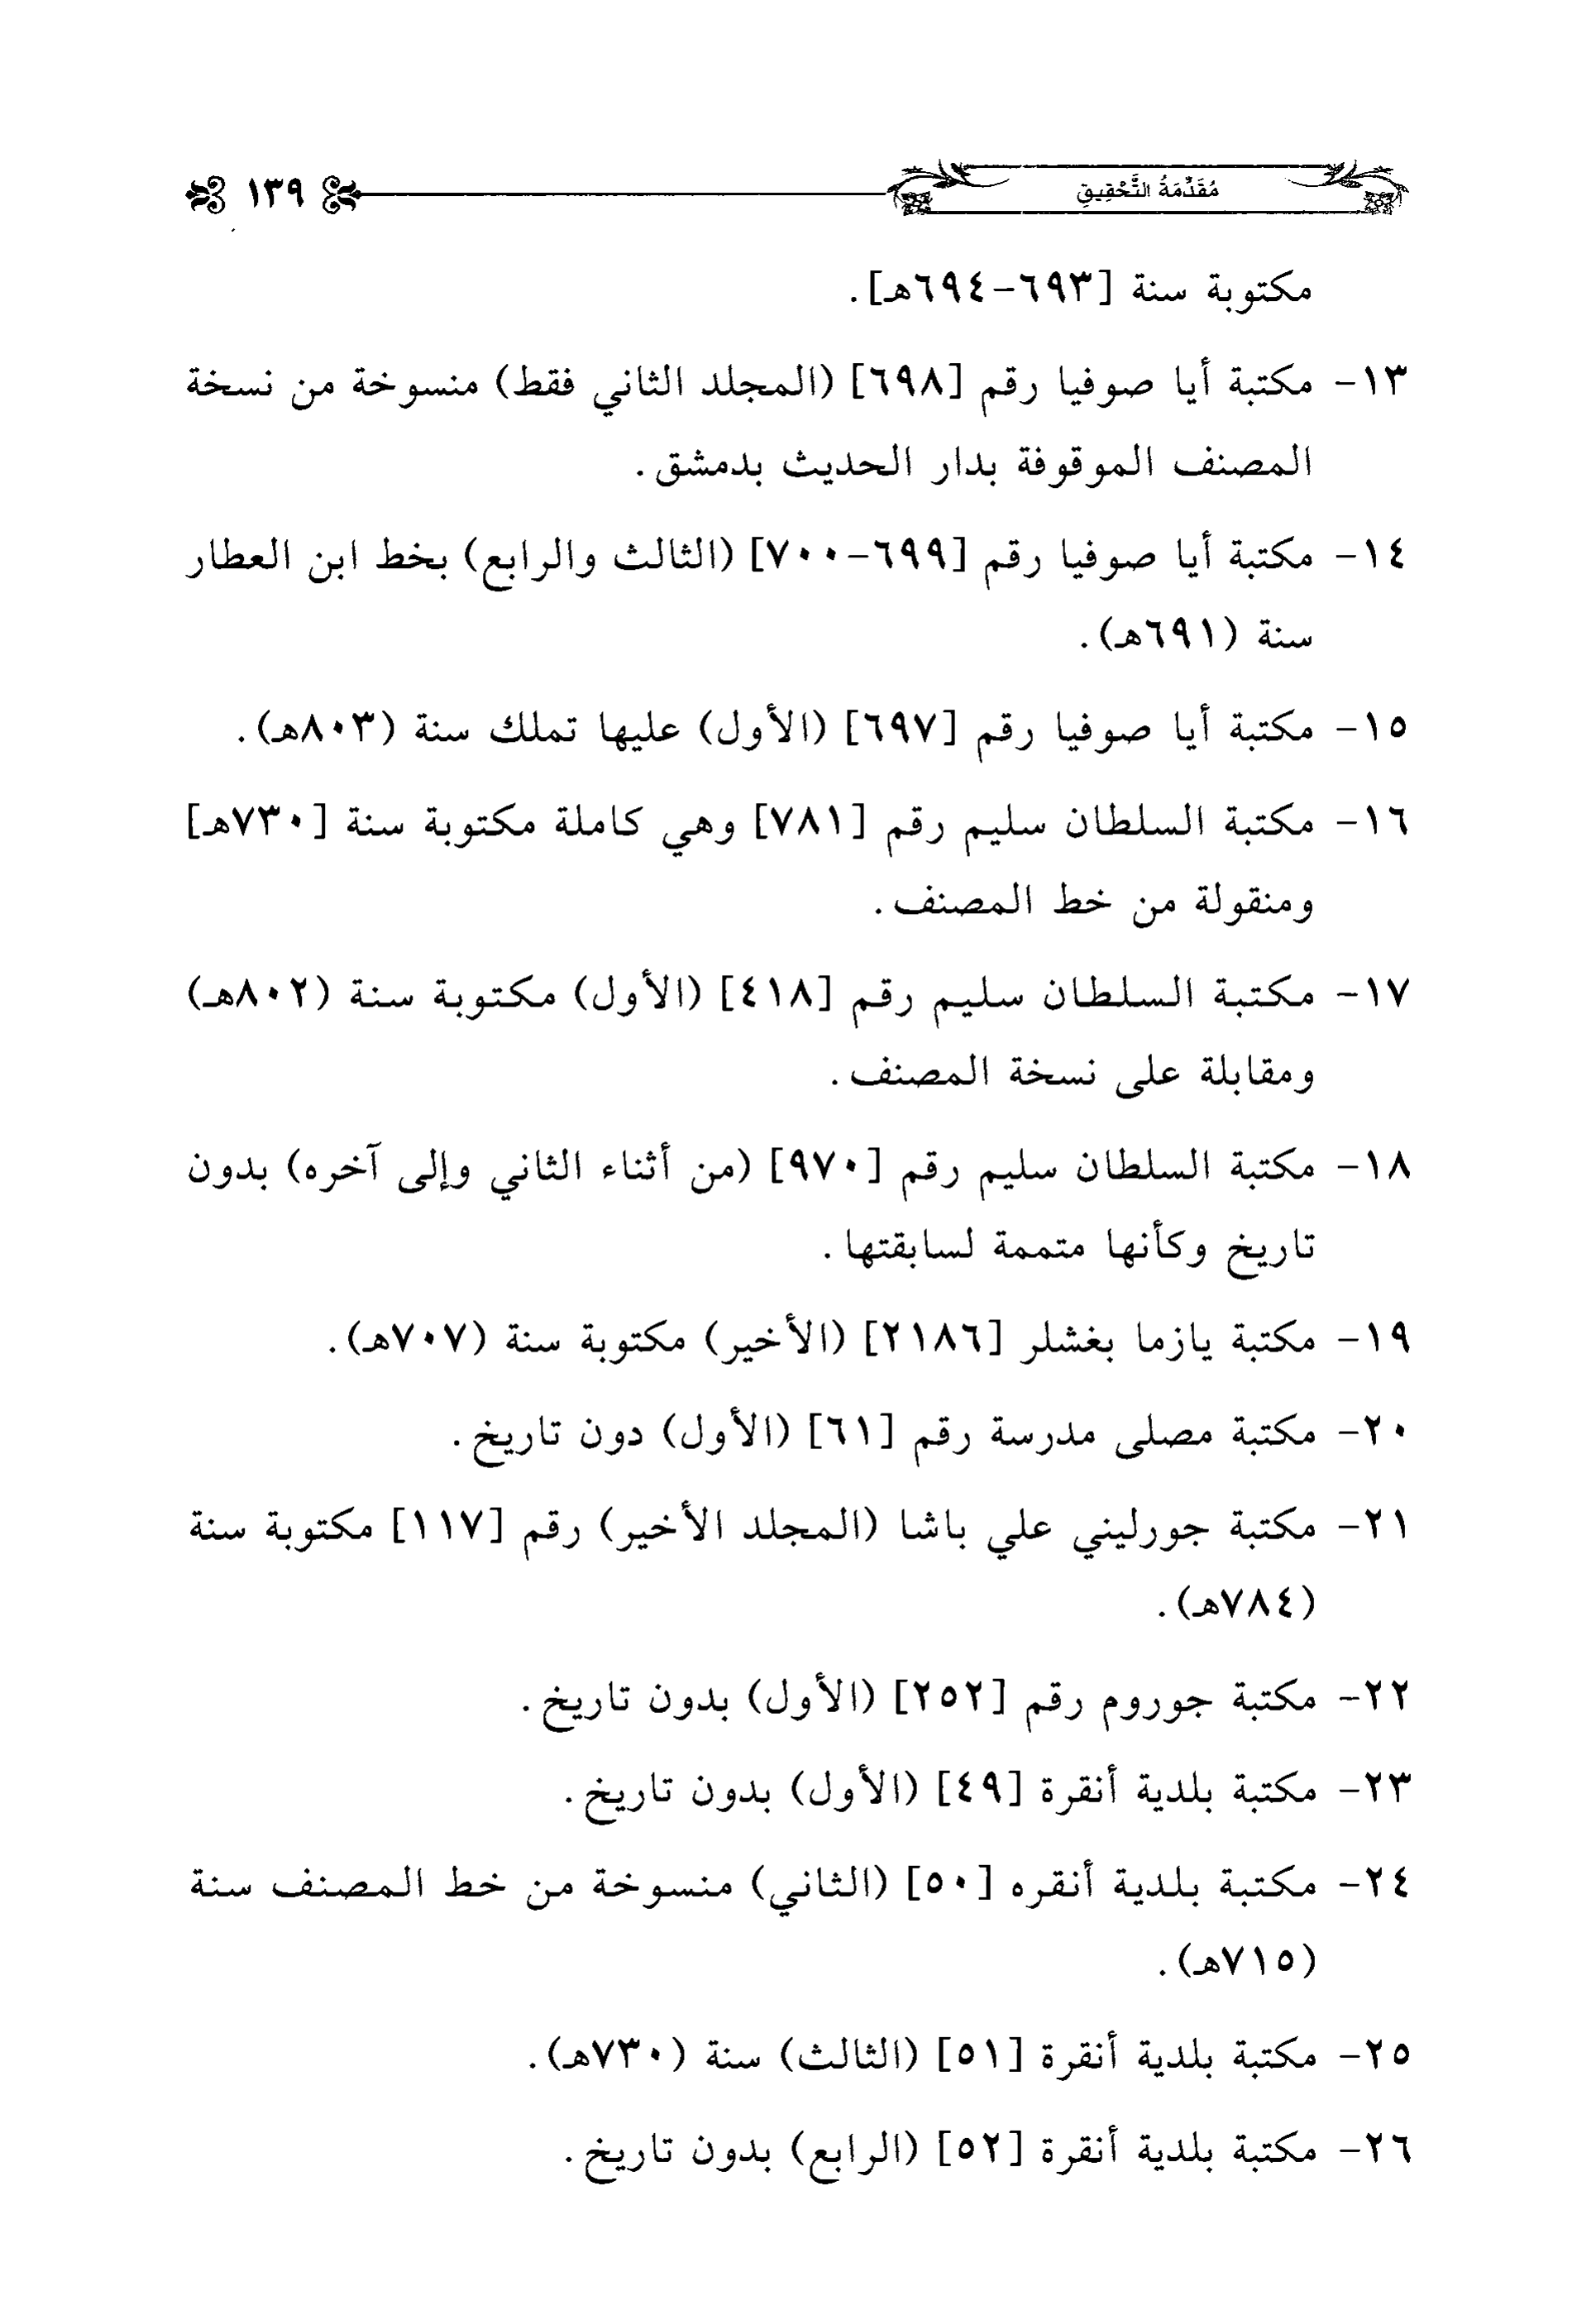 مُقَدِّمَةُ التَّحْقِيقِ ١٣٩
مكتوبة سنة [٦٩٣-٦٩٤هـ].
١٣- مكتبة أيا صوفيا رقم [٦٩٨] (المجلد الثاني فقط) منسوخة من نسخة
المصنف الموقوفة بدار الحديث بدمشق.
١٤- مكتبة أيا صوفيا رقم [٦٩٩-٧٠٠] (الثالث والرابع) بخط ابن العطار
سنة (٦٩١هـ).
١٥- مكتبة أيا صوفيا رقم [٦٩٧] (الأول) عليها تملك سنة (٨٠٣هـ).
١٦- مكتبة السلطان سليم رقم [٧٨١] وهي كاملة مكتوبة سنة [٧٣٠هـ]
ومنقولة من خط المصنف.
١٧- مكتبة السلطان سليم رقم [٤١٨] (الأول) مكتوبة سنة (٨٠٢هـ)
ومقابلة على نسخة المصنف.
١٨- مكتبة السلطان سليم رقم [٩٧٠] (من أثناء الثاني وإلى آخره) بدون
تاريخ وكأنها متممة لسابقتها.
١٩- مكتبة يازما بغشلر [٢١٨٦] (الأخير) مكتوبة سنة (٧٠٧هـ).
٢٠- مكتبة مصلى مدرسة رقم [٦١] (الأول) دون تاريخ.
٢١- مكتبة جورليني علي باشا (المجلد الأخير) رقم [١١٧] مكتوبة سنة
(٧٨٤هـ).
٢٢- مكتبة جوروم رقم [٢٥٢] (الأول) بدون تاريخ.
٢٣- مكتبة بلدية أنقرة [٤٩] (الأول) بدون تاريخ.
٢٤- مكتبة بلدية أنقره [٥٠] (الثاني) منسوخة من خط المصنف سنة
(٧١٥هـ).
٢٥- مكتبة بلدية أنقرة [٥١] (الثالث) سنة (٧٣٠هـ).
٢٦- مكتبة بلدية أنقرة [٥٢] (الرابع) بدون تاريخ.